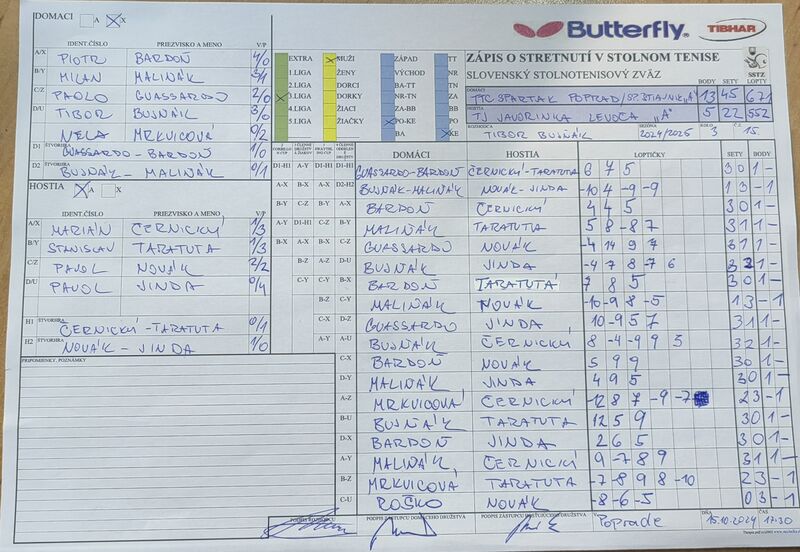 DOMÁCI A X
IDENT.ČÍSLO PRIEZVISKO A MENO V/P
A/X PIOTR BARDOŇ 4/0
B/Y MILAN MALINÁK 3/1
C/Z PAOLO GUASSARDO 2/0
D/U TIBOR BUJŇÁK 3/0
NELA MRKVICOVÁ 0/2
D1 ŠTVORHRA GUASSARDO-BARDOŇ 1/0
D2 ŠTVORHRA BUJŇÁK-MALIŇÁK 0/1
HOSTIA A X
IDENT.ČÍSLO PRIEZVISKO A MENO V/P
A/X MARIÁN ČERNICKÝ 1/3
B/Y STANISLAV TARATUTA 1/3
C/Z PAVOL NOVÁK 2/2
D/U PAVOL JINDA 0/4
H1 ŠTVORHRA ČERNICKÝ-TARATUTA 0/1
H2 ŠTVORHRA NOVÁK-JINDA 1/0
PRIPOMIENKY, POZNÁMKY
EXTRA MUŽI ZÁPAD TT
1.LIGA ŽENY VÝCHOD NR
2.LIGA DORCI BA-TT TN
3.LIGA DORKY NR-TN ZA
4.LIGA ŽIACI ZA-BB BB
5.LIGA ŽIAČKY PO-KE PO
BA KE
Butterfly
TIBHAR
ZÁPIS O STRETNUTÍ V STOLNOM TENISE
SLOVENSKÝ STOLNOTENISOVÝ ZVÄZ
SSTZ
BODY SETY LOPTY
DOMÁCI 13 45 671
HOSTIA TJ JAVORINKA LEVOČA "A" 5 22 552
ROZHODCA TIBOR BUJŇÁK SEZÓNA 2024/2025 KOLO 3 Č. 15.
DOMÁCI HOSTIA LOPTIČKY SETY BODY
D1-H1 GUASSARDO-BARDOŇ ČERNICKÝ-TARATUTA 6 7 5 3 0 1 -
D2-H2 BUJŇÁK-MALIŇÁK NOVÁK-JINDA -10 4 -9 -9 1 3 - 1
A-X BARDOŇ ČERNICKÝ 4 4 5 3 0 1 -
B-Y MALIŇÁK TARATUTA 5 8 -8 7 3 1 1 -
C-Z GUASSARDO NOVÁK -4 14 9 7 3 1 1 -
D-U BUJŇÁK JINDA -4 7 8 -7 6 3 2 1 -
B-X BARDOŇ TARATUTÁ 7 8 5 3 0 1 -
C-Y MALIŇÁK NOVÁK -10 -9 8 -5 1 3 - 1
D-Z GUASSARDO JINDA 10 -9 5 7 3 1 1 -
A-U BUJŇÁK ČERNICKÝ 8 -4 -9 9 3 3 2 1 -
C-X BARDOŇ NOVÁK 5 9 9 3 0 1 -
D-Y MALIŇÁK JINDA 4 9 5 3 0 1 -
A-Z MRKVICOVÁ ČERNICKÝ -12 8 7 -9 -7 2 3 - 1
B-U BUJŇÁK TARATUTA 12 5 9 3 0 1 -
D-X BARDOŇ JINDA 2 6 5 3 0 1 -
A-Y MALIŇÁK ČERNICKÝ 9 -7 8 9 3 1 1 -
B-Z MRKVICOVÁ TARATUTA -7 8 9 8 -10 2 3 - 1
C-U ROČKO NOVÁK -8 -6 -5 0 3 - 1
PODPIS ROZHODCU PODPIS ZÁSTUPCU DOMÁCEHO DRUŽSTVA PODPIS ZÁSTUPCU HOSŤUJÚCEHO DRUŽSTVA V Poprade DŇA 15.10.2024 ČAS 17:30